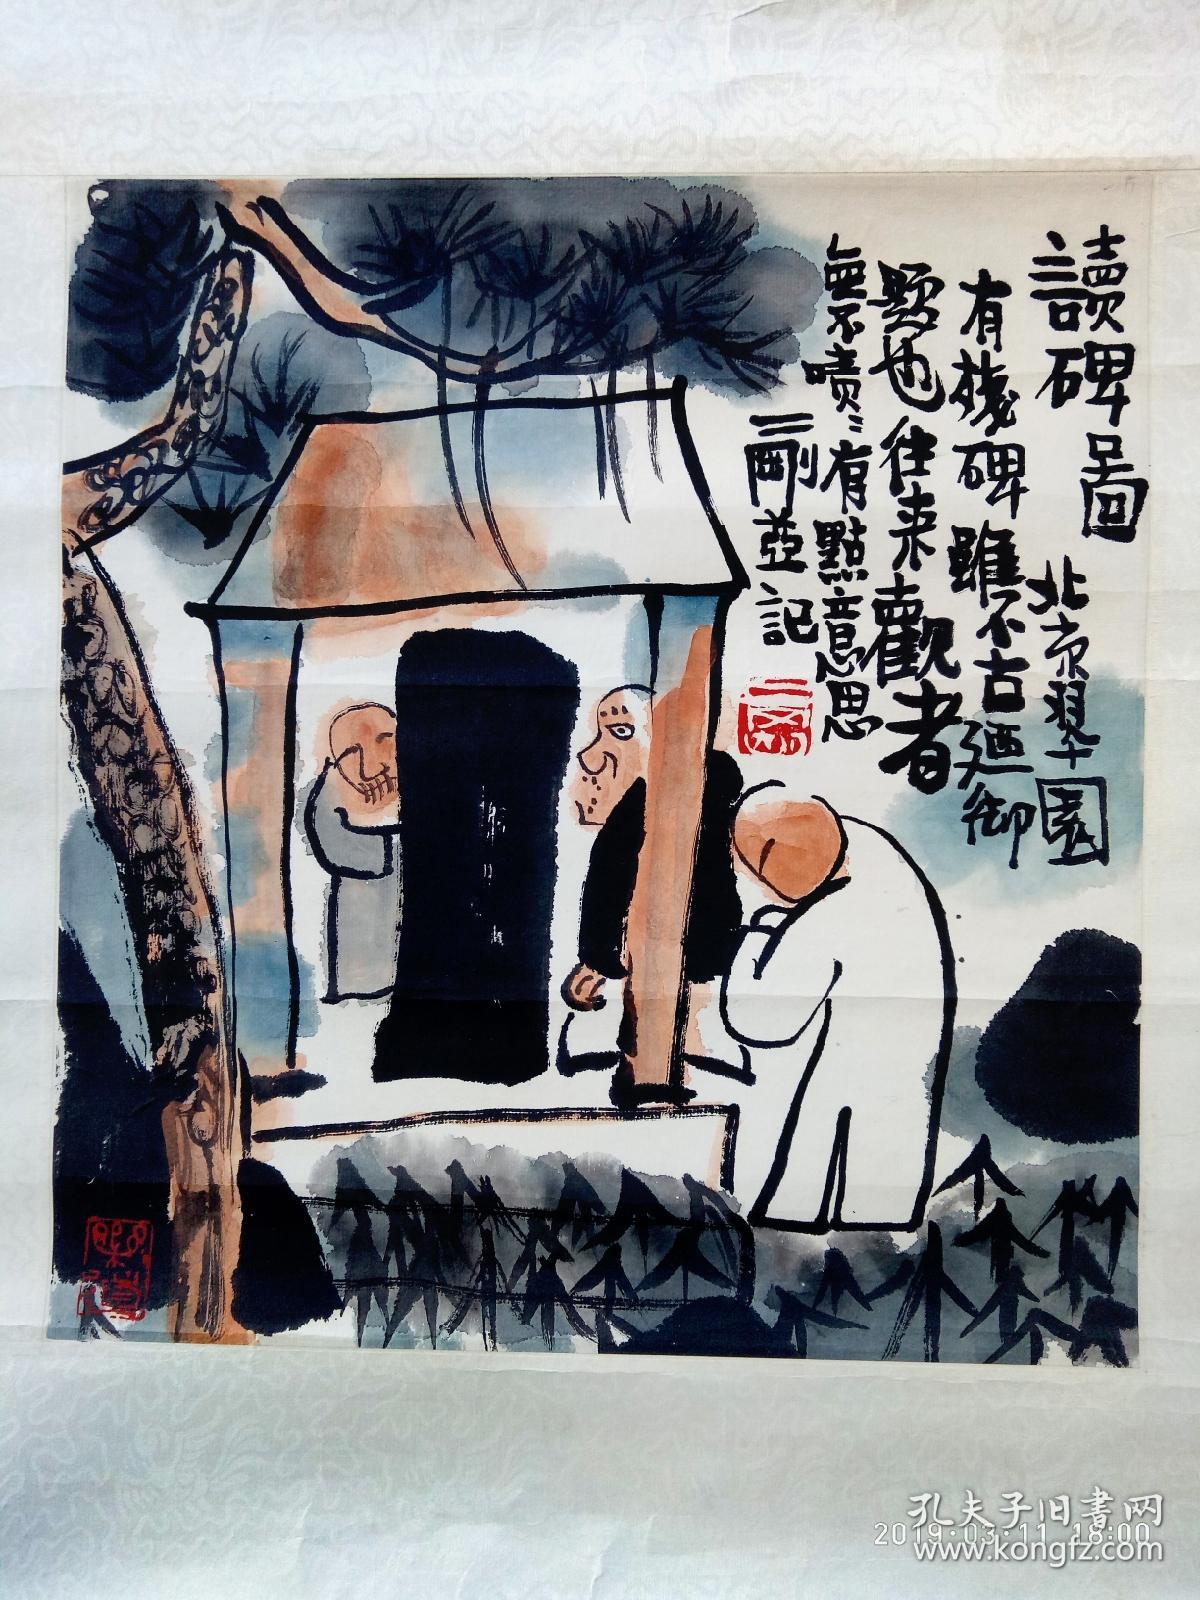 讀碑圖
北京翠園
有幾碑雖不古廼御
題也往来觀者
無不嘖〻有點意思
二剛並記
孔夫子旧書网
2019·03·11 18:00
www.kongfz.com